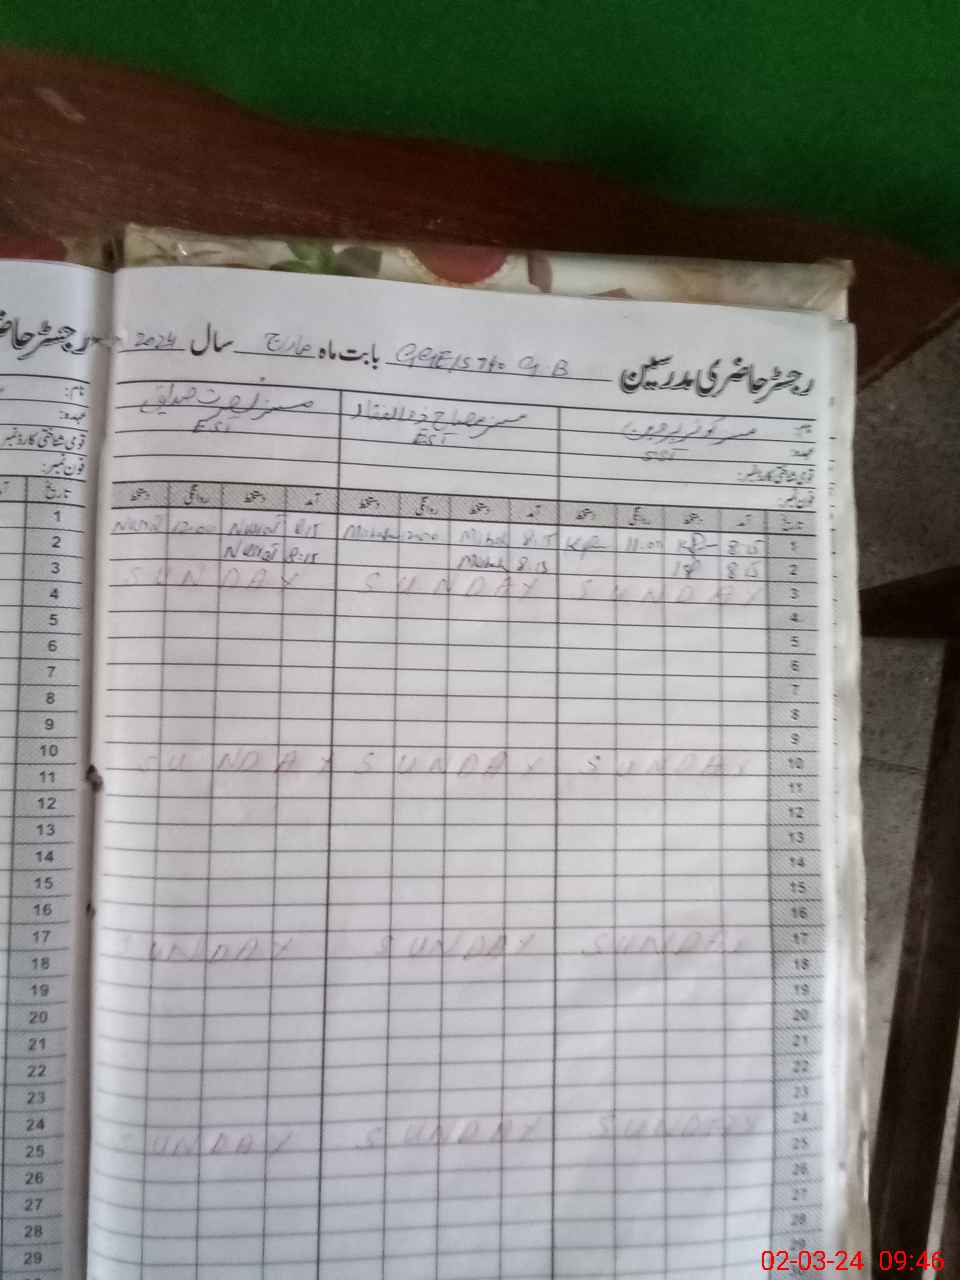 رجسٹر حاضری مدرسین GGE/S G.B بابت ماہ مارچ سال 2024
نام: مسز کوثر پروین مسز مصباح ذوالفقار مسز نصرت صدیق
عہدہ: SST EST EST
قومی شناختی کارڈ نمبر:
فون نمبر:
تاریخ آمد دستخط روانگی دستخط آمد دستخط روانگی دستخط آمد دستخط روانگی دستخط
1 8:15 8:15 8:15 Nusrat 12:00
2 8:15 8:15 Nusrat 8:15
3 SUNDAY SUNDAY SUNDAY
4
5
6
7
8
9
10 SUNDAY SUNDAY SUNDAY
11
12
13
14
15
16
17 SUNDAY SUNDAY UNDAY
18
19
20
21
22
23
24 SUNDAY SUNDAY UNDAY
25
26
27
28
29
رجسٹر حاضر
نام:
عہدہ:
قومی شناختی کارڈ نمبر
فون نمبر:
تاریخ
1
2
3
4
5
6
7
8
9
10
11
12
13
14
15
16
17
18
19
20
21
22
23
24
25
26
27
28
29
02-03-24 09:46